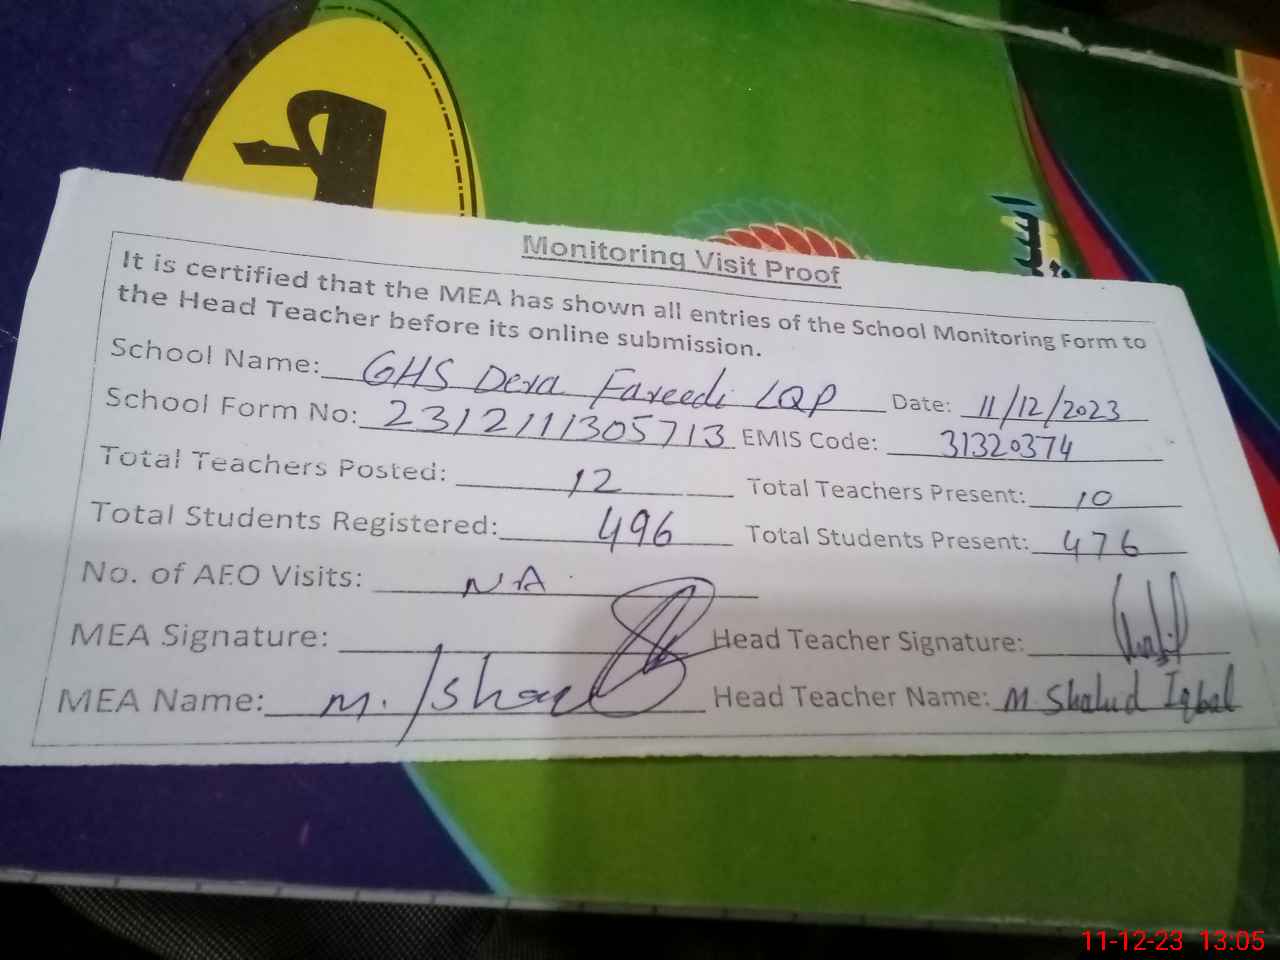 Monitoring Visit Proof
It is certified that the MEA has shown all entries of the School Monitoring Form to
the Head Teacher before its online submission.
School Name: GHS Dera Fareedi LQP Date: 11/12/2023
School Form No: 2312111305713 EMIS Code: 31320374
Total Teachers Posted: 12 Total Teachers Present: 10
Total Students Registered: 496 Total Students Present: 476
No. of AEO Visits: NA
MEA Signature: Head Teacher Signature:
MEA Name: M. Head Teacher Name: M Shahid Iqbal
11-12-23 13:05